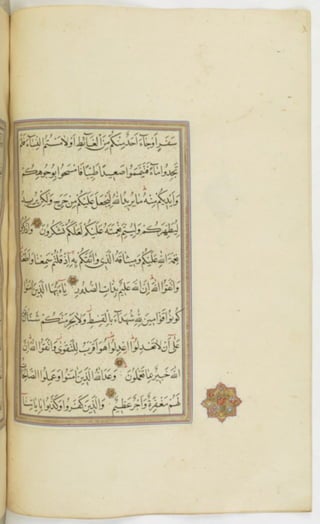 سَفَرٍ أَوْ جَاءَ أَحَدٌ مِنْكُمْ مِنَ الْغَائِطِ أَوْ لَامَسْتُمُ النِّسَاءَ فَلَمْ
تَجِدُوا مَاءً فَتَيَمَّمُوا صَعِيدًا طَيِّبًا فَامْسَحُوا بِوُجُوهِكُمْ
وَأَيْدِيكُمْ مِنْهُ مَا يُرِيدُ اللَّهُ لِيَجْعَلَ عَلَيْكُمْ مِنْ حَرَجٍ وَلَكِنْ يُرِيدُ
لِيُطَهِّرَكُمْ وَلِيُتِمَّ نِعْمَتَهُ عَلَيْكُمْ لَعَلَّكُمْ تَشْكُرُونَ وَاذْكُرُوا
نِعْمَةَ اللَّهِ عَلَيْكُمْ وَمِيثَاقَهُ الَّذِي وَاثَقَكُمْ بِهِ إِذْ قُلْتُمْ سَمِعْنَا وَأَطَعْنَا
وَاتَّقُوا اللَّهَ إِنَّ اللَّهَ عَلِيمٌ بِذَاتِ الصُّدُورِ يَا أَيُّهَا الَّذِينَ آمَنُوا
كُونُوا قَوَّامِينَ لِلَّهِ شُهَدَاءَ بِالْقِسْطِ وَلَا يَجْرِمَنَّكُمْ شَنَآنُ
عَلَى أَنْ لَا تَعْدِلُوا اعْدِلُوا هُوَ أَقْرَبُ لِلتَّقْوَى وَاتَّقُوا اللَّهَ إِنَّ
اللَّهَ خَبِيرٌ بِمَا تَعْمَلُونَ وَعَدَ اللَّهُ الَّذِينَ آمَنُوا وَعَمِلُوا الصَّالِحَاتِ
لَهُمْ مَغْفِرَةٌ وَأَجْرٌ عَظِيمٌ وَالَّذِينَ كَفَرُوا وَكَذَّبُوا بِآيَاتِنَا